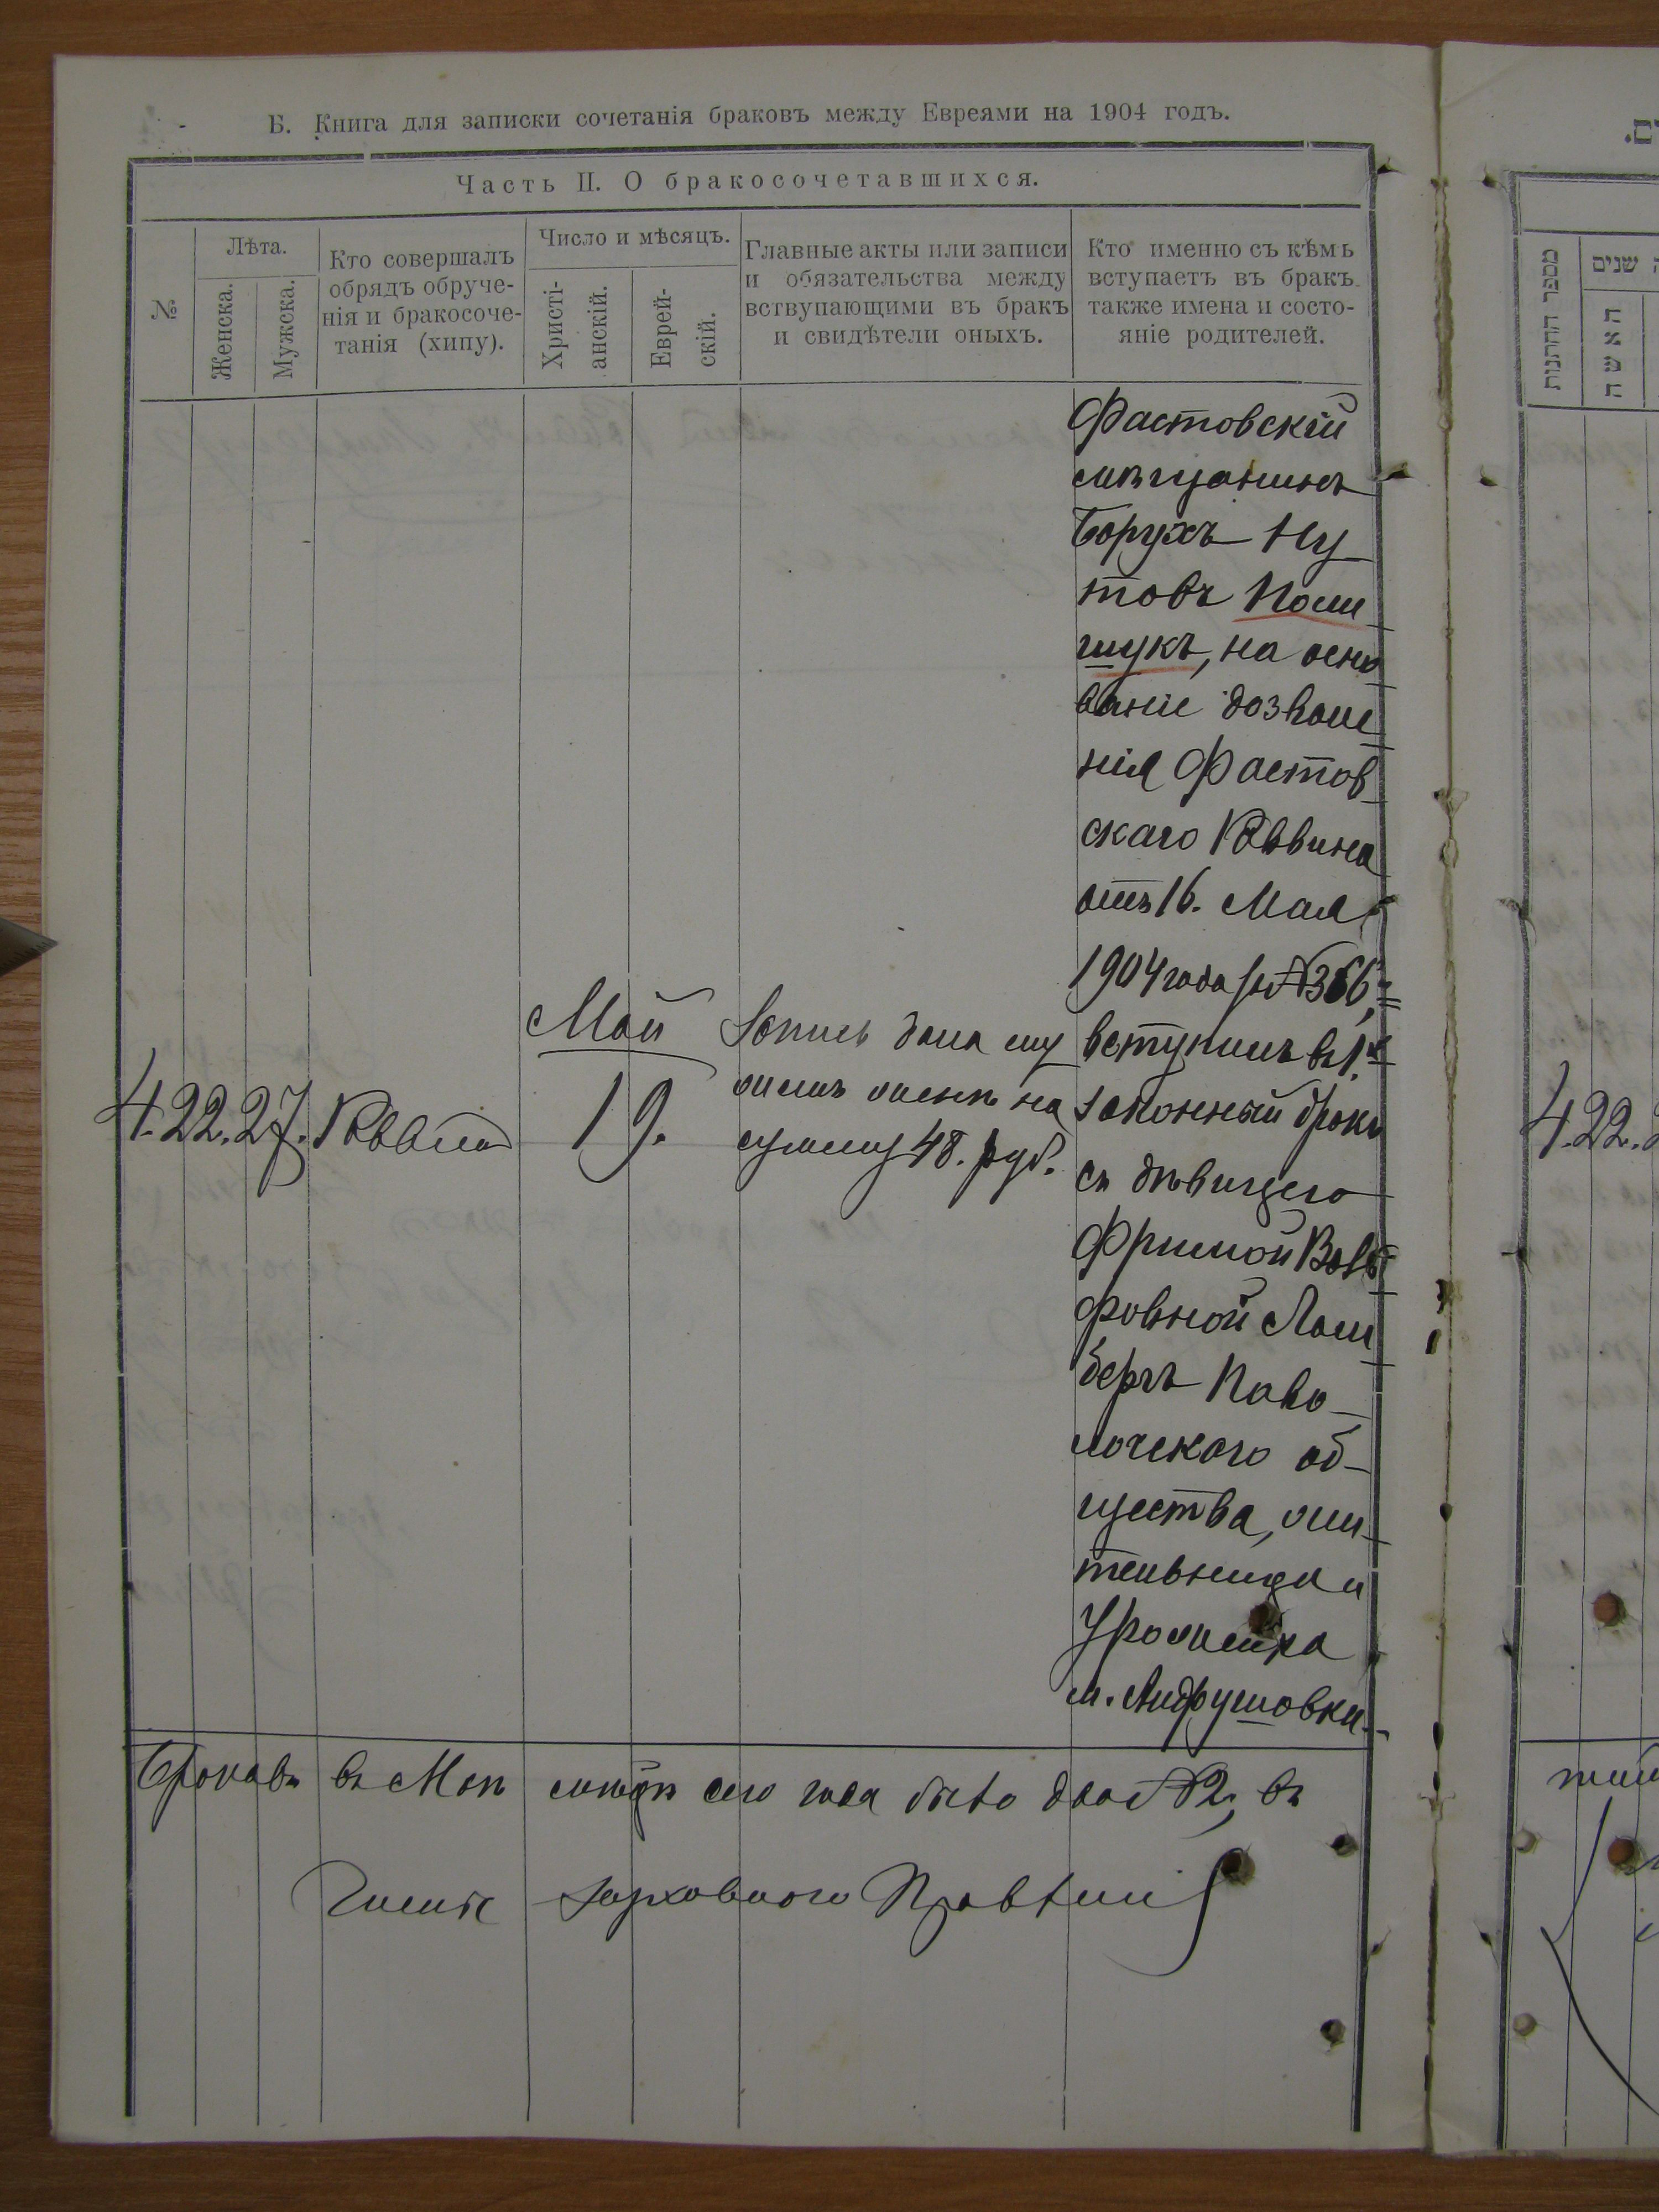 Б. Книга для записки сочетанія браковъ между Евреями на 1904 годъ.
Часть II. О бракосочетавшихся.
№
Лѣта.
Женска.
Мужска.
Кто совершалъ
обрядъ обруче-
нія и бракосоче-
танія (хипу).
Число и мѣсяцъ.
Христі-
анскій.
Еврей-
скій.
Главные акты или записи
и обязательства между
вствупающими въ бракъ
и свидѣтели оныхъ.
Кто именно съ кѣмъ
вступаетъ въ бракъ
также имена и состо-
яніе родителей.
4. 22. 27. Раввинъ
Май
19.
Запись дана
на
сумму 48. руб.
Фастовскій
мѣщанинъ
Борухъ Ну_
товъ Поли_
щукъ, на осно_
ваніе дозволе_
нія Фастов_
скаго Раввина
отъ 16. Мая
1904 года за № 366,=
вступилъ въ 1й
законный бракъ
съ дѣвицею
Фримой Воль_
фовной
бергъ Паво_
лочскаго об_
щества, жи_
тельница
м. Андрушовки._
Браковъ въ Маѣ мѣсяцѣ сего года было два № 2, въ
מספר החתנות
שנים
האשה
4. 22.